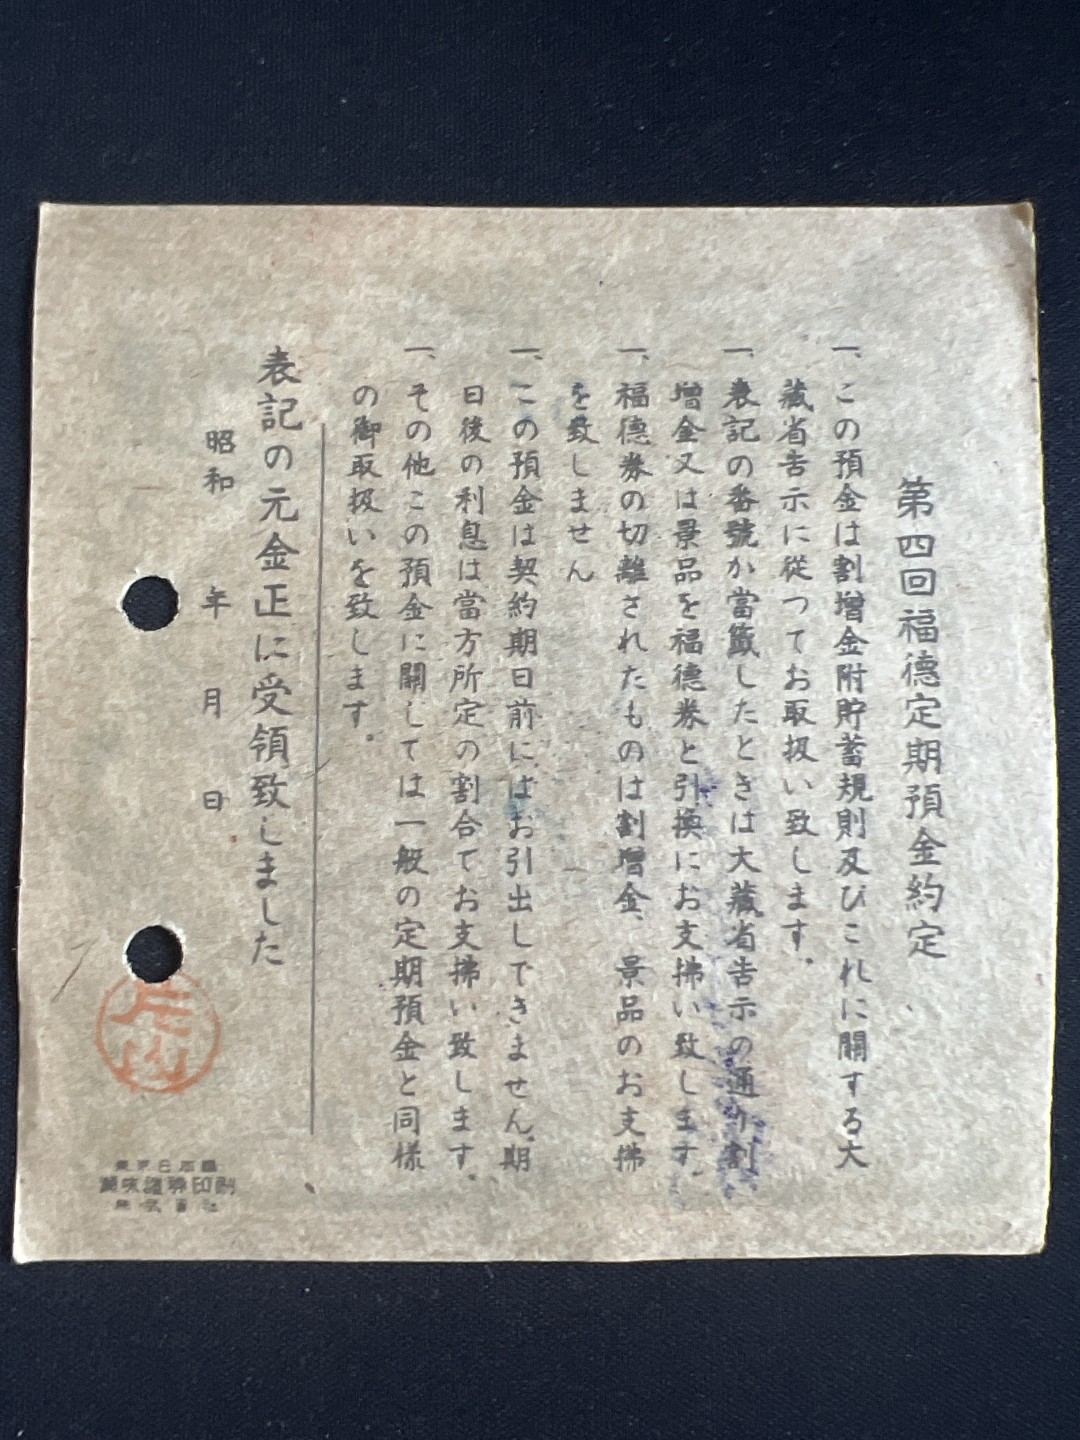 第四回福德定期預金約定
一、この預金は割增金附貯蓄規則及びこれに關する大
藏省吿示に從つてお取扱い致します。
一、表記の番號か當籤したときは大藏省吿示の通り割
增金又は景品を福德券と引換にお支拂い致します。
一、福德券の切離されたものは割增金、景品のお支拂
を致しません
一、この預金は契約期日前にはお引出しできません。期
日後の利息は當方所定の割合てお支拂い致します。
一、その他この預金に關しては一般の定期預金と同樣
の御取扱いを致します。
表記の元金正に受領致しました
昭和 年 月 日
片山
印刷